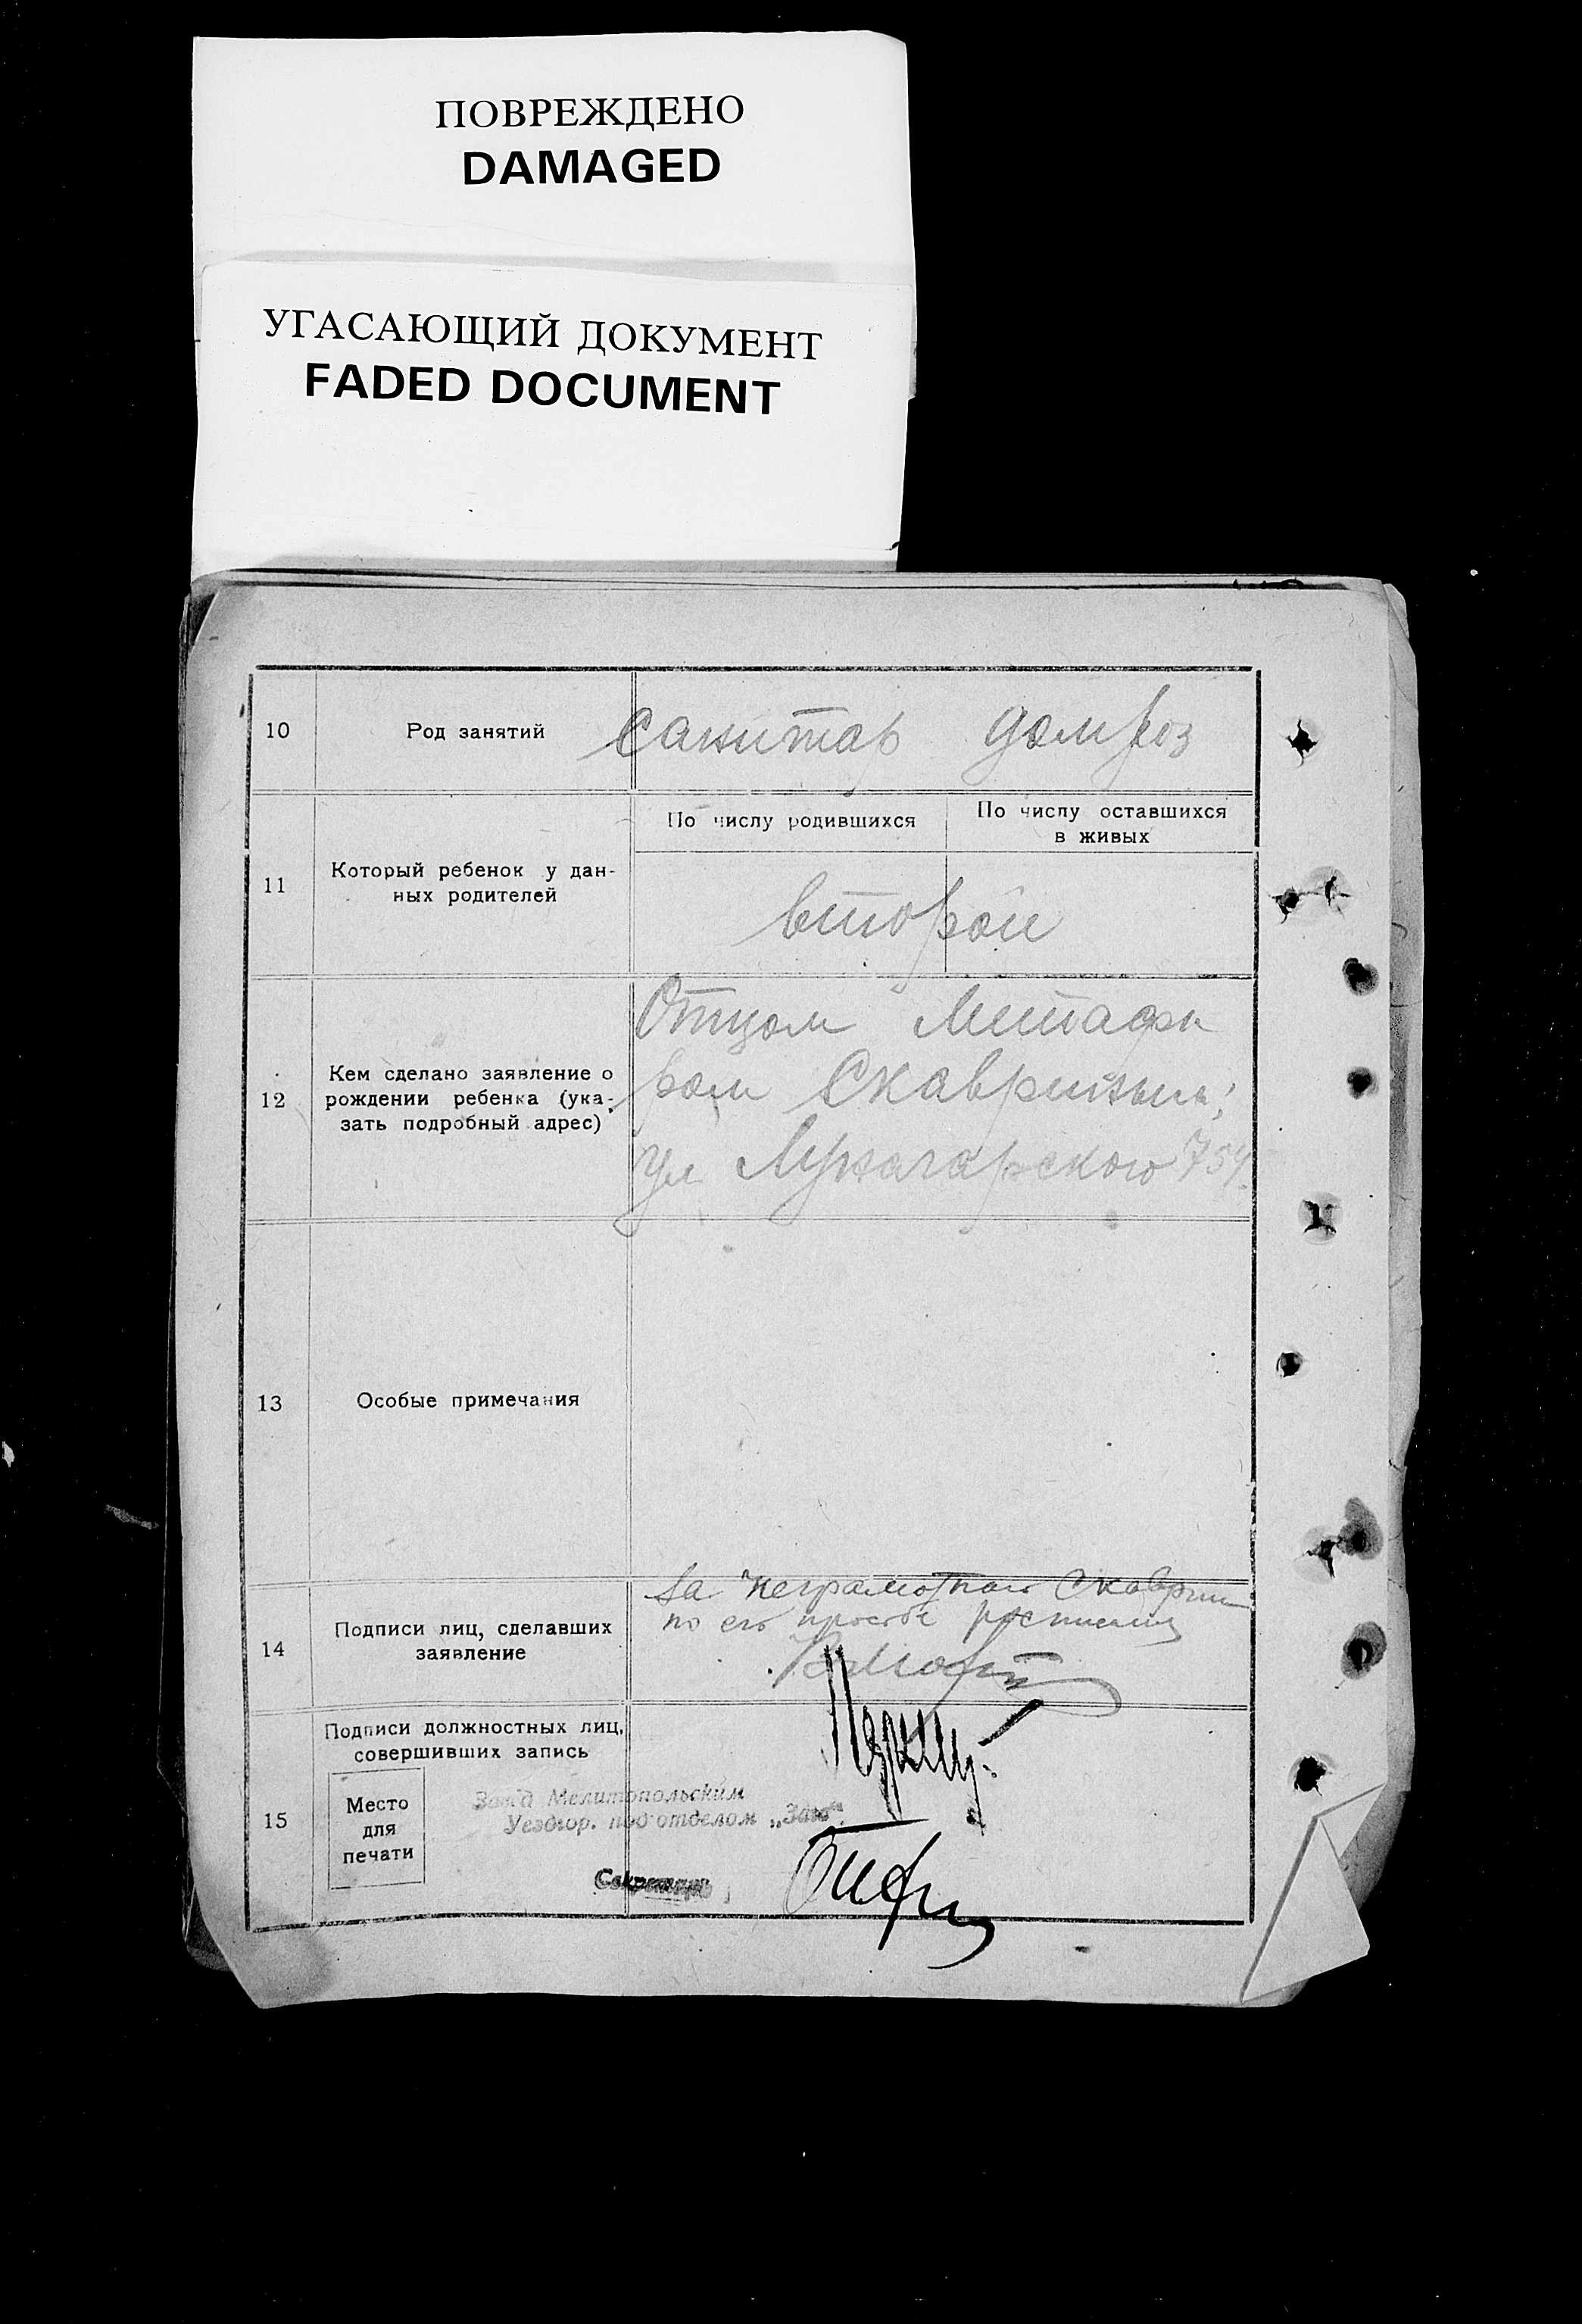 ПОВРЕЖДЕНО
DAMAGED
УГАСАЮЩИЙ ДОКУМЕНТ
FADED DOCUMENT
10
Род занятий
санитар
11
Который ребенок у дан-
ных родителей
По числу родившихся
По числу оставшихся
в живых
второй
12
Кем сделано заявление о
рождении ребенка (ука-
зать подробный адрес)
Отцом
ул Луначарского
13
Особые примечания
14
Подписи лиц, сделавших
заявление
За неграмотного
по его просьбе
15
Подписи должностных лиц,
совершивших запись
Место
для
печати
Мелитопольским
Уездгор. подотделом „Загс“